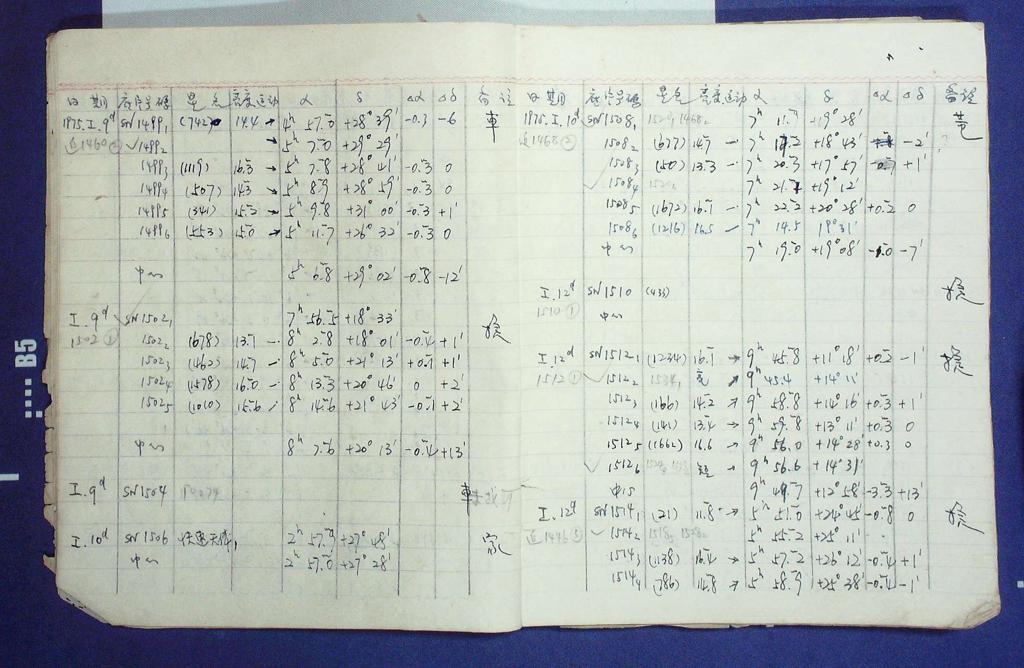 日期 底片号码 星名 亮度 运动 α δ Δα Δδ 备注
1975.I.9d SN1499₁ (742) 14.4 → 4h 57.0 +28° 39' -0.3 -6
追1460② 1499₂ → 5h 7.0 +29° 29'
1499₃ (1119) 16.3 → 5h 7.8 +28° 41' -0.3 0
1499₄ (1507) 14.3 → 5h 8.9 +28° 59' -0.3 0
1499₅ (341) 15.2 → 5h 9.8 +31° 00' -0.3 +1'
1499₆ (553) 15.0 → 5h 11.7 +26° 32' -0.3 0
中心 5h 6.8 +29° 02' -0.8 -12'
I.9d SN1502₁ 7h 56.5 +18° 33'
1502① 1502₂ (678) 13.7 - 8h 2.8 +18° 01' -0.4 +1'
1502₃ (462) 14.7 - 8h 5.0 +21° 13' +0.1 +1'
1502₄ (1578) 16.0 - 8h 13.3 +20° 46' 0 +2'
1502₅ (1010) 15.6 - 8h 14.6 +21° 43' -0.1 +2'
中心 8h 7.6 +20° 13' -0.4 +13'
I.9d SN1504
I.10d SN1506 快速天体, 2h 57.9 +27° 48'
中心 2h 57.0 +27° 28'
日期 底片号码 星名 亮度 运动 α δ Δα Δδ 备注
1975.I.10d SN1508₁ 7h 11. +19° 28'
追1468② 1508₂ (677) 14.7 - 7h 17.2 +18° 43' -2'
1508₃ (50) 13.3 - 7h 20.3 +17° 57' +1'
1508₄ 7h 21.7 +19° 12'
1508₅ (1672) 16.1 - 7h 22.2 +20° 28' +0.2 0
1508₆ (1216) 16.5 - 7h 14.5 19° 31'
中心 7h 19.0 +19° 08' -1.0 -7'
I.12d SN1510 (433)
1510① 中心
I.12d SN1512₁ (1234) 16.1 → 9h 45.8 +11° 18' +0.2 -1'
1512① 1512₂ 亮 ↗ 9h 45.4 +14° 11'
1512₃ (166) 14.2 ↗ 9h 58.8 +14° 16' +0.3 +1'
1512₄ (141) 13.4 → 9h 59.8 +13° 11' +0.3 0
1512₅ (1662) 16.6 → 9h 56.0 +14° 28' +0.3 0
1512₆ 短 → 9h 56.6 +14° 31'
中心 9h 49.7 +12° 58' -3.3 +13'
I.12d SN1514₁ (21) 11.8 → 5h 51.0 +24° 45' -0.8 0
追1446⑤ 1514₂ 5h 55.2 +25° 11'
1514₃ (1138) 16.4 → 5h 57.2 +26° 12' -0.4 +1'
1514₄ (786) 14.8 → 5h 58.9 +25° 38' -0.4 -1'
B5